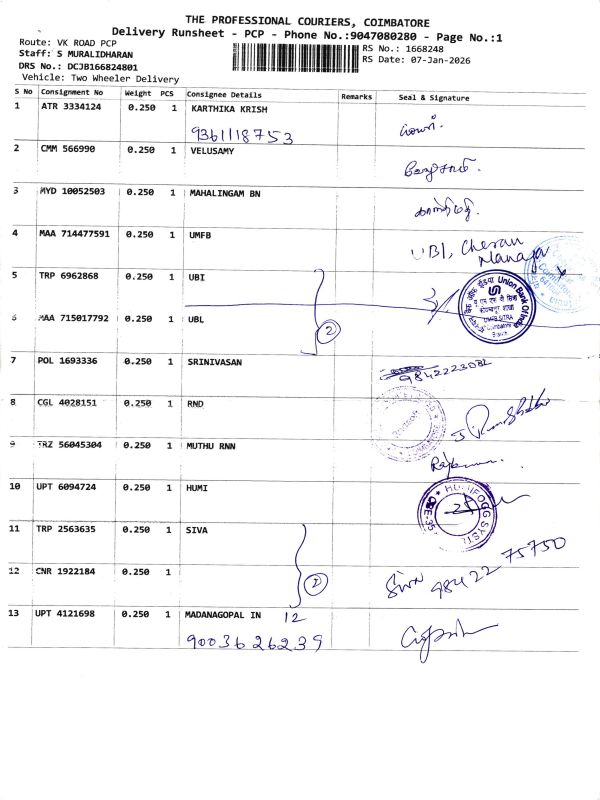 THE PROFESSIONAL COURIERS, COIMBATORE
Delivery Runsheet - PCP - Phone No.:9047080280 - Page No.:1
Route: VK ROAD PCP
Staff: S MURALIDHARAN
DRS No.: DCJB166824801
Vehicle: Two Wheeler Delivery
RS No.: 1668248
RS Date: 07-Jan-2026
S No Consignment No Weight PCS Consignee Details Remarks Seal & Signature
1 ATR 3334124 0.250 1 KARTHIKA KRISH
9361118753
2 CMM 566990 0.250 1 VELUSAMY
3 MYD 10052503 0.250 1 MAHALINGAM BN
4 MAA 714477591 0.250 1 UMFB
UBI, Cheran
Managar
5 TRP 6962868 0.250 1 UBI
Union Bank Of India
6 MAA 715017792 0.250 1 UBL
2
7 POL 1693336 0.250 1 SRINIVASAN
9842223082
8 CGL 4028151 0.250 1 RND
9 TRZ 56045304 0.250 1 MUTHU RNN
10 UPT 6094724 0.250 1 HUMI
HUMIFOGG SYST
CBE-35
11 TRP 2563635 0.250 1 SIVA
12 CNR 1922184 0.250 1
2
Siva 98422 75750
13 UPT 4121698 0.250 1 MADANAGOPAL IN 12
9003626239